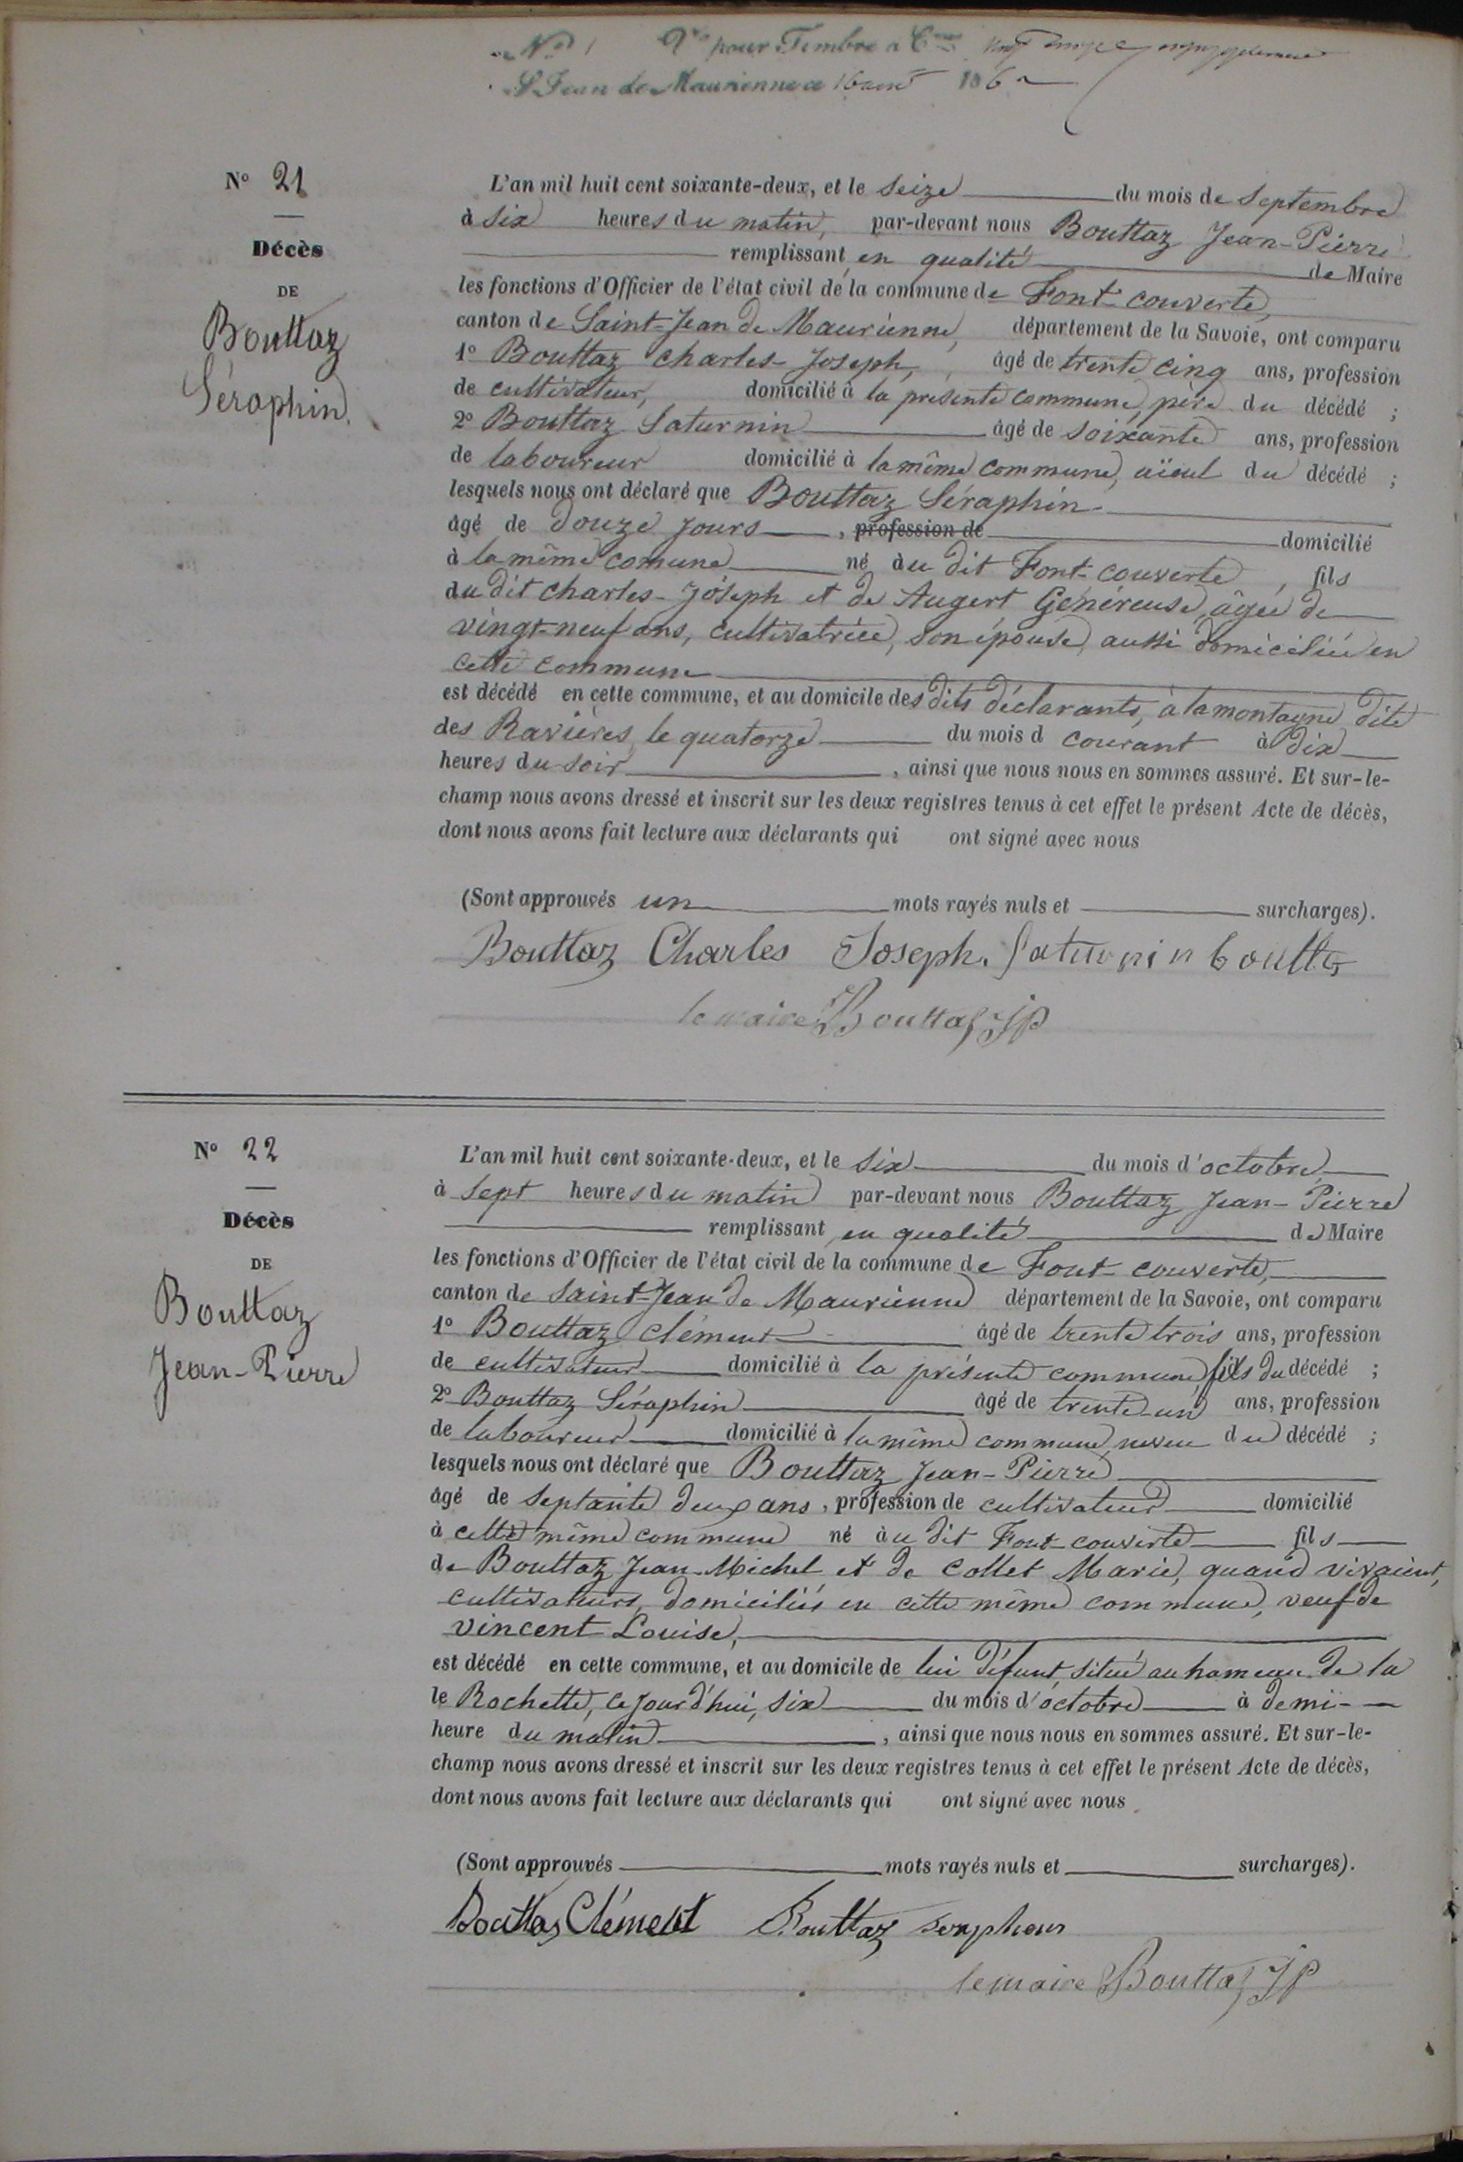 N° 1 Vu pour Timbre a
St Jean de Maurienne ce 16 186
N° 21
Décès
DE
Bouttaz
Séraphin
L'an mil huit cent soixante-deux, et le seize du mois de septembre
à six heures du matin, par-devant nous Bouttaz Jean-Pierre
remplissant, en qualité de Maire
les fonctions d'Officier de l'état civil de la commune de Font-couverte,
canton de Saint-Jean de Maurienne, département de la Savoie, ont comparu
1° Bouttaz charles-Joseph, âgé de trente cinq ans, profession
de cultivateur, domicilié à la présente commune, père du décédé ;
2° Bouttaz Saturnin âgé de soixante ans, profession
de laboureur domicilié à la même commune, aïeul du décédé ;
lesquels nous ont déclaré que Bouttaz Séraphin
âgé de douze jours, profession de domicilié
à la même comune né àu dit Font-couverte, fils
du dit charles-Joseph et de Augert Généreuse, âgée de
vingt-neuf ans, cultivatrice, son épouse, aussi domiciliée en
cette commune
est décédé en cette commune, et au domicile des dits déclarants, à la montagne dite
des Ravières, le quatorze du mois d courant à dix
heures du soir, ainsi que nous nous en sommes assuré. Et sur-le-
champ nous avons dressé et inscrit sur les deux registres tenus à cet effet le présent Acte de décès,
dont nous avons fait lecture aux déclarants qui ont signé avec nous
(Sont approuvés un mots rayés nuls et surcharges).
Bouttaz Charles Joseph. Saturnin bouttaz
le maire Bouttaz JP
N° 22
Décès
DE
Bouttaz
Jean-Pierre
L'an mil huit cent soixante-deux, et le six du mois d'octobre,
à sept heures du matin par-devant nous Bouttaz Jean-Pierre
remplissant, en qualité de Maire
les fonctions d'Officier de l'état civil de la commune de Font-couverte,
canton de Saint-Jean de Maurienne département de la Savoie, ont comparu
1° Bouttaz Clément âgé de trente trois ans, profession
de cultivateur domicilié à la présente commune, fils du décédé ;
2° Bouttaz Séraphin âgé de trente-un ans, profession
de laboureur domicilié à la même commune, neveu du décédé ;
lesquels nous ont déclaré que Bouttaz Jean-Pierre
âgé de septante deux ans, profession de cultivateur domicilié
à cette même commune né àu dit Font-couverte fils
de Bouttaz Jean-Michel et de Collet Marie, quand vivaient,
cultivateurs, domiciliés en cette même commune, veuf de
vincent Louise,
est décédé en cette commune, et au domicile de lui défunt, situé au hameau de la
le Rochette, ce jourd'hui, six du mois d'octobre à demi-
heure du matin, ainsi que nous nous en sommes assuré. Et sur-le-
champ nous avons dressé et inscrit sur les deux registres tenus à cet effet le présent Acte de décès,
dont nous avons fait lecture aux déclarants qui ont signé avec nous
(Sont approuvés mots rayés nuls et surcharges).
Bouttaz Clément Bouttaz
le maire Bouttaz JP